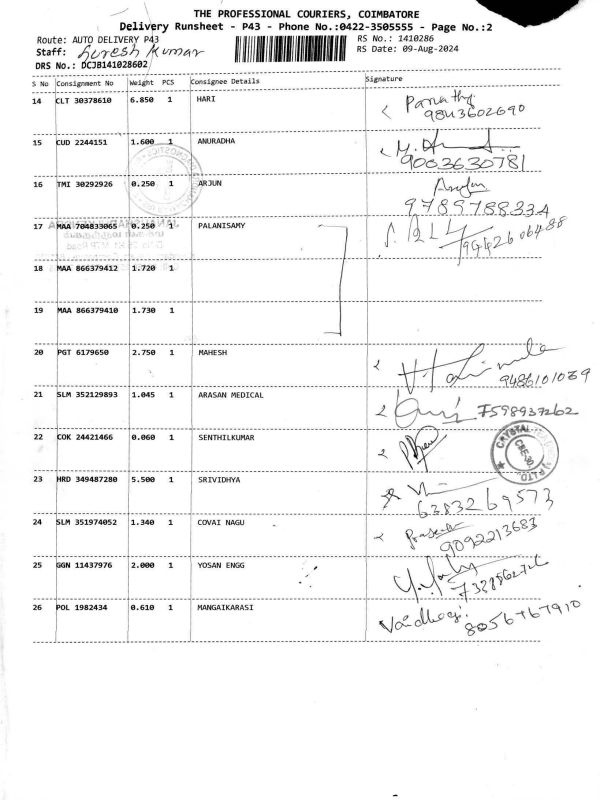 THE PROFESSIONAL COURIERS, COIMBATORE
Delivery Runsheet - P43 - Phone No.:0422-3505555 - Page No.:2
Route: AUTO DELIVERY P43 RS No.: 1410286
Staff: Suresh Kumar RS Date: 09-Aug-2024
DRS No.: DCJB141028602
S No Consignment No Weight PCS Consignee Details Signature
14 CLT 30378610 6.850 1 HARI
9843602690
15 CUD 2244151 1.600 1 ANURADHA
9003630781
16 TMI 30292926 0.250 1 ARJUN Arjun
9789788334
17 MAA 704833065 0.250 1 PALANISAMY
9442606488
18 MAA 866379412 1.720 1
19 MAA 866379410 1.730 1
20 PGT 6179650 2.750 1 MAHESH
9486101039
21 SLM 352129893 1.045 1 ARASAN MEDICAL 7598937262
22 COK 24421466 0.060 1 SENTHILKUMAR
CRYSTAL
CBE-30
P LTD
23 HRD 349487280 5.500 1 SRIVIDHYA
6383269573
24 SLM 351974052 1.340 1 COVAI NAGU
9092213683
25 GGN 11437976 2.000 1 YOSAN ENGG
26 POL 1982434 0.610 1 MANGAIKARASI Vaidhegi
8056767910